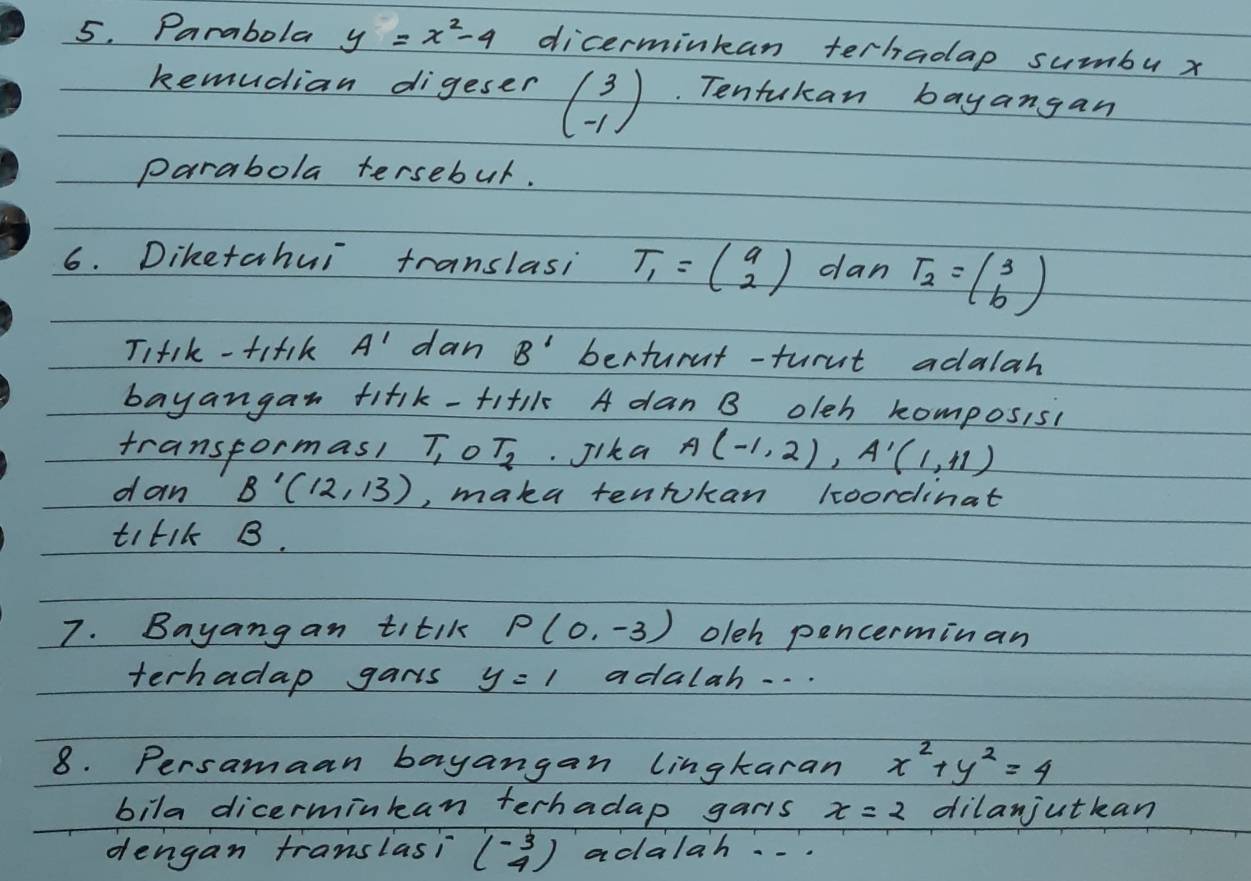 5. Parabola y = x²-4 dicerminkan terhadap sumbu x
kemudian digeser (3 -1). Tentukan bayangan
parabola tersebut.
6. Diketahui translasi T₁ = (a 2) dan T₂ = (3 b)
Titik-titik A' dan B' berturut-turut adalah
bayangan titik-titik A dan B oleh komposisi
transformasi T₁ o T₂. Jika A(-1,2), A'(1,11)
dan B'(12,13), maka tentukan koordinat
titik B.
7. Bayangan titik P(0,-3) oleh pencerminan
terhadap garis y=1 adalah...
8. Persamaan bayangan lingkaran x²+y²=4
bila dicerminkan terhadap garis x=2 dilanjutkan
dengan translasi (-3 4) adalah...